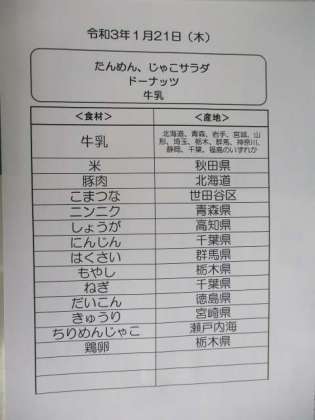 令和3年1月21日（木）
たんめん、じゃこサラダ
ドーナッツ
牛乳
＜食材＞ ＜産地＞
牛乳 北海道、青森、岩手、宮城、山
形、埼玉、栃木、群馬、神奈川、
静岡、千葉、福島のいずれか
米 秋田県
豚肉 北海道
こまつな 世田谷区
ニンニク 青森県
しょうが 高知県
にんじん 千葉県
はくさい 群馬県
もやし 栃木県
ねぎ 千葉県
だいこん 徳島県
きゅうり 宮崎県
ちりめんじゃこ 瀬戸内海
鶏卵 栃木県